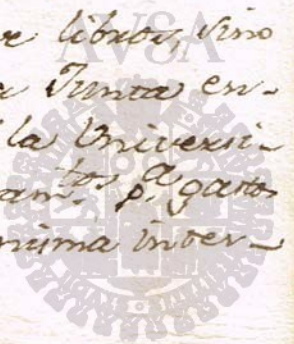 AVSA
e libros, sino
a Junta en-
la Universi-
am.tos p.a gastos
nima inter-